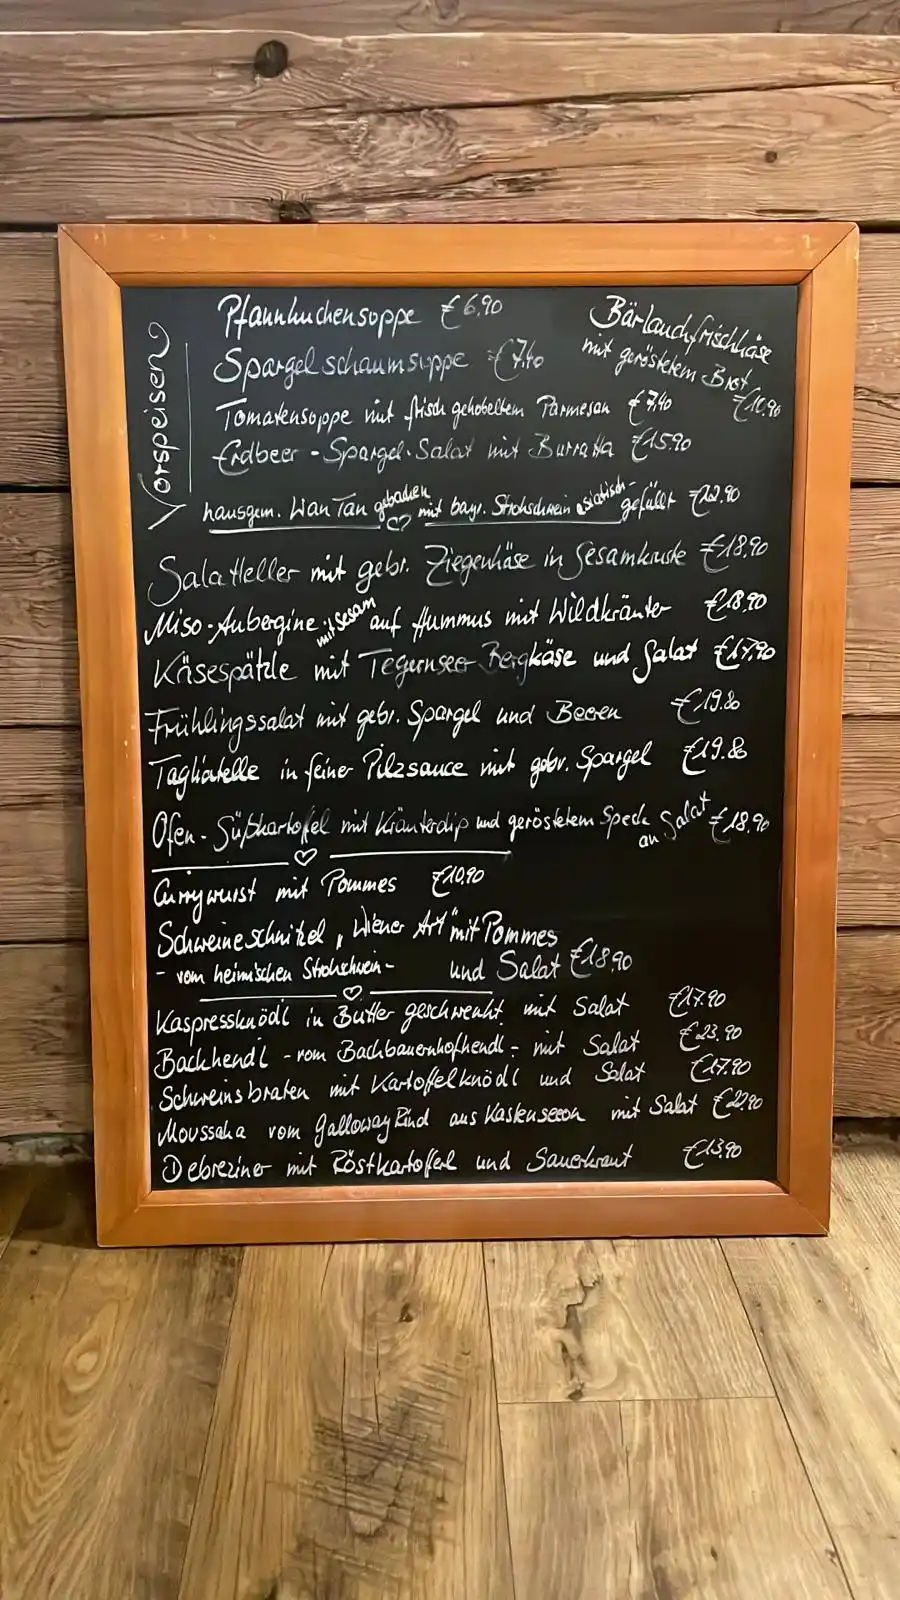 Vorspeisen
Pfannkuchensuppe €6,90
Bärlauchfrischkäse
mit geröstetem Brot
€10,90
Spargelschaumsuppe €7,40
Tomatensuppe mit frisch gehobeltem Parmesan €7,40
Erdbeer-Spargel-Salat mit Burratta €15,90
hausgem. Wan Tan gebacken mit bayr. Strohschwein asiatisch- gefüllt €12,90
Salatteller mit gebr. Ziegenkäse in Sesamkruste €18,90
Miso-Aubergine mit Sesam auf Hummus mit Wildkräuter €18,90
Käsespätzle mit Tegernseer Bergkäse und Salat €17,90
Frühlingssalat mit gebr. Spargel und Beeren €19.80
Tagliatelle in feiner Pilzsauce mit gebr. Spargel €19.80
Ofen-Süßkartoffel mit Kräuterdip und geröstetem Speck an Salat €18,90
Currywurst mit Pommes €10,90
Schweineschnitzel „Wiener Art" mit Pommes
- vom heimischen Strohschwein- und Salat €18,90
Kaspressknödl in Butter geschwenkt mit Salat €17.90
Backhendl - vom Bachbauernhofhendl - mit Salat €23,90
Schweinsbraten mit Kartoffelknödl und Salat €17.90
Moussaka vom Galloway Rind aus Kastenseeon mit Salat €22,90
Debreziner mit Röstkartoffel und Sauerkraut €13,90